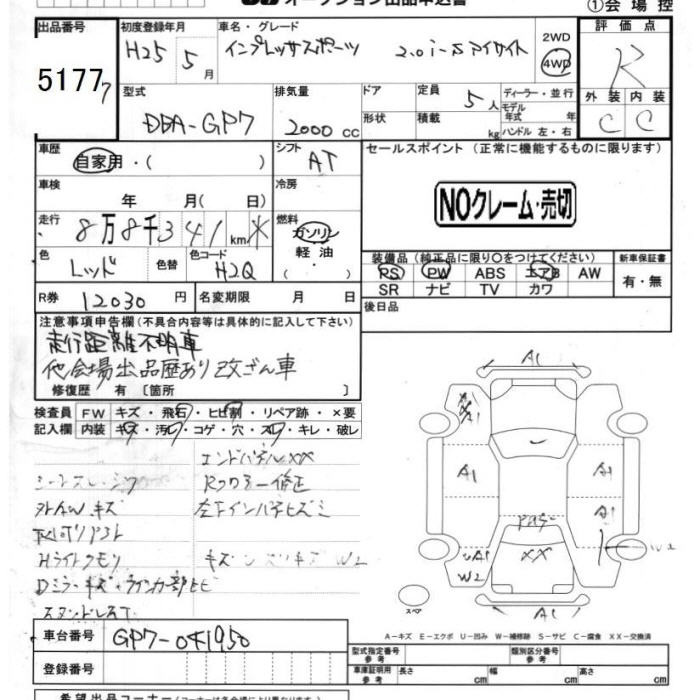 オークション出品申込書
①会場控
出品番号 初度登録年月 車名・グレード 評価点
5177 H25 5月 インプレッサスポーツ 2.0i-S アイサイト 2WD 4WD R
型式 排気量 ドア 定員 ディーラー・並行 外装 内装
DBA-GP7 2000cc 5人 モデル年式 年 C C
形状 積載 kg ハンドル 左・右
車歴 シフト セールスポイント (正常に機能するものに限ります)
自家用・( ) AT
車検 年 月( 日) 冷房 NOクレーム・売切
走行 8万8千341km* 燃料 ガソリン 軽油・( )
装備品 (純正品に限り○をつけてください) 新車保証書
色 レッド 色替 色コード H2Q PS PW ABS エアB AW 有・無
SR ナビ TV カワ
R券 12030円 名変期限 月 日 後日品
注意事項申告欄(不具合内容等は具体的に記入して下さい)
走行距離不明車
他会場出品歴あり 改ざん車
修復歴 有 〔箇所 〕
検査員 FW キズ・飛石・ヒビ割・リペア跡・×要
記入欄 内装 キズ・汚レ・コゲ・穴・スレ・キレ・破レ
エンドパネルXX
外AWキズ
左下インパネヒズミ
Hライトクモリ
W2
Dミラーキズ・ウインカー部ヒビ
A1
A1
A1 A1
A1
A1 W2
XX
W2
A1
スペア
A-キズ E-エクボ U-凹み W-補修跡 S-サビ C-腐食 XX-交換済
車台番号 GP7-041950
型式指定番号 参考 類別区分番号 参考
登録番号 車庫証明用 参考 長さ cm 幅 cm 高さ cm
希望出品コーナー